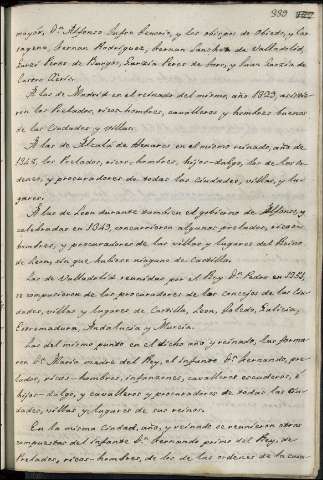 339
mayor, Dn. Alfonso Jufre Tenorio, y los obispos de Oviedo, y Car
tagena, Fernan Rodriguez, Fernan Sanchez de Valladolid,
Ruiz Perez de Burgos, Garzia Perez de Toro, y Juan Garzia de
Castro Xeriz.
A las de Madrid en el reinado del mismo, año 1393, asistie-
rón los Prelados, ricos-hombres, cavalleros y hombres buenos
de las Ciudades y villas.
A las de Alcalá de Henares en el mismo reinado, año de
los Prelados, ricos-hombres, hijos-dalgo, los de las or-
denes, y procuradores de todas las ciudades, villas, y lu-
gares.
A las de Leon durante tambien el gobierno de Alfonso, y
celebradas en 1349, concurrieron algunos prelados, ricos-
hombres, y procuradores de las villas y lugares del Reino
de Leon, sin que hubiese ninguno de Castilla.
Las de Valladolid reunidas por el Rey Dn. Pedro en 1351,
se compusieron de los procuradores de los concejos de las Ciu-
dades, villas y lugares de Castilla, Leon, Toledo, Galicia,
Extremadura, Andalucia y Murcia.
Las del mismo punto en el dicho año, y reinado, las forma-
ron Da. Maria madre del Rey, el infante Dn. Fernando, pre-
lados, ricos-hombres, infanzones, cavalleros escuderos, é
hijos-dalgo, y cavalleros y procuradores de todas las Ciu-
dades, villas y lugares de sus reinos.
En la misma ciudad, año, y reinado se reunieron otras
compuestas del infante Dn. Fernando primo del Rey, de
Prelados, ricos-hombres, de los de las ordenes de la cava